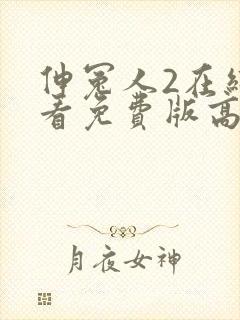 伸冤人2在
看免費版高
月夜女神